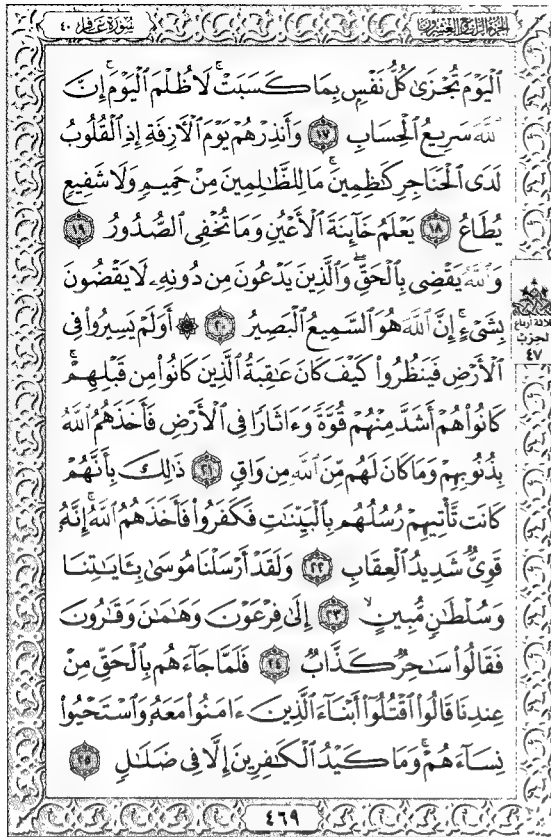 سُورَةُ غَافِر ٤٠
الجُزءُ الرَّابِع وَالعِشرُون
ٱلۡيَوۡمَ تُجۡزَىٰ كُلُّ نَفۡسِۭ بِمَا كَسَبَتۡۚ لَا ظُلۡمَ ٱلۡيَوۡمَۚ إِنَّ
ٱللَّهَ سَرِيعُ ٱلۡحِسَابِ ١٧ وَأَنذِرۡهُمۡ يَوۡمَ ٱلۡأٓزِفَةِ إِذِ ٱلۡقُلُوبُ
لَدَى ٱلۡحَنَاجِرِ كَٰظِمِينَۚ مَا لِلظَّٰلِمِينَ مِنۡ حَمِيمٖ وَلَا شَفِيعٖ
يُطَاعُ ١٨ يَعۡلَمُ خَآئِنَةَ ٱلۡأَعۡيُنِ وَمَا تُخۡفِي ٱلصُّدُورُ ١٩
وَٱللَّهُ يَقۡضِي بِٱلۡحَقِّۖ وَٱلَّذِينَ يَدۡعُونَ مِن دُونِهِۦ لَا يَقۡضُونَ
بِشَيۡءٍۗ إِنَّ ٱللَّهَ هُوَ ٱلسَّمِيعُ ٱلۡبَصِيرُ ٢٠ ۞ أَوَلَمۡ يَسِيرُواْ فِي
ٱلۡأَرۡضِ فَيَنظُرُواْ كَيۡفَ كَانَ عَٰقِبَةُ ٱلَّذِينَ كَانُواْ مِن قَبۡلِهِمۡۚ
كَانُواْ هُمۡ أَشَدَّ مِنۡهُمۡ قُوَّةٗ وَءَاثَارٗا فِي ٱلۡأَرۡضِ فَأَخَذَهُمُ ٱللَّهُ
بِذُنُوبِهِمۡ وَمَا كَانَ لَهُم مِّنَ ٱللَّهِ مِن وَاقٖ ٢١ ذَٰلِكَ بِأَنَّهُمۡ
كَانَت تَّأۡتِيهِمۡ رُسُلُهُم بِٱلۡبَيِّنَٰتِ فَكَفَرُواْ فَأَخَذَهُمُ ٱللَّهُۚ إِنَّهُۥ
قَوِيّٞ شَدِيدُ ٱلۡعِقَابِ ٢٢ وَلَقَدۡ أَرۡسَلۡنَا مُوسَىٰ بِـَٔايَٰتِنَا
وَسُلۡطَٰنٖ مُّبِينٍ ٢٣ إِلَىٰ فِرۡعَوۡنَ وَهَٰمَٰنَ وَقَٰرُونَ
فَقَالُواْ سَٰحِرٞ كَذَّابٞ ٢٤ فَلَمَّا جَآءَهُم بِٱلۡحَقِّ مِنۡ
عِندِنَا قَالُواْ ٱقۡتُلُوٓاْ أَبۡنَآءَ ٱلَّذِينَ ءَامَنُواْ مَعَهُۥ وَٱسۡتَحۡيُواْ
نِسَآءَهُمۡۚ وَمَا كَيۡدُ ٱلۡكَٰفِرِينَ إِلَّا فِي ضَلَٰلٖ ٢٥
ثلاثة أرباع
الحزب
٤٧
٤٦٩